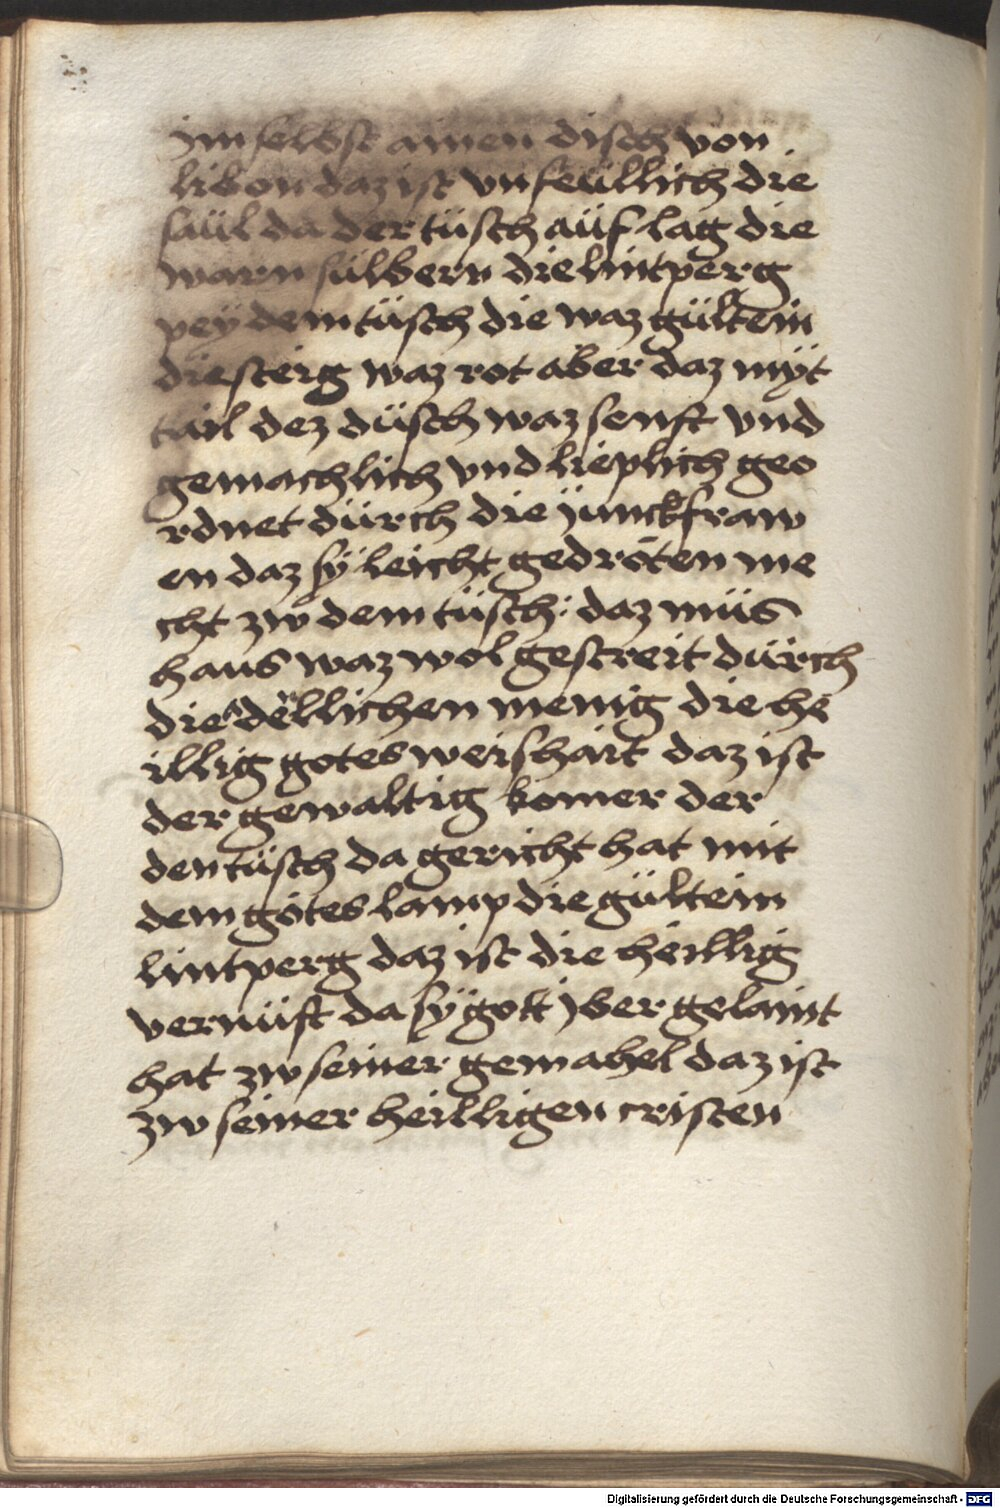 im selbst ainen disch von
libon daz ist vnfeüllich die
saül da der tüsch aüf lag die
warn sülbern die lintperg
pey dem tüsch die waz gültein
die steig waz rot aber daz myt
tail dez düsch waz senft vnd
gemachlich vnd lieplich geo
rdnet dürch die junckfraw
en daz sÿ leicht gedröten me
cht zw dem tüsch : daz müs
haus waz wol gestreit dürch
die adellichen menig die he
illig gotes weishait daz ist
der gewaltig komer der
den tüsch da gericht hat mit
dem gotes lamp die gültein
lintperg daz ist die heillig
vernüft da sÿ gott jber gelaint
hat zw seiner gemahel daz ist
zw seiner heilligen cristen
Digitalisierung gefördert durch die Deutsche Forschungsgemeinschaft - DFG